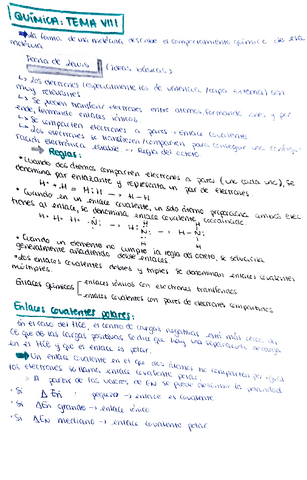 QUÍMICA: TEMA VIII
La forma de una molécula describe el comportamiento químico de esta
molécula
Teoría de Lewis (ideas básicas)
↳ Los electrones (especialmente los de valencia / capa externa) son
muy relevantes
↳ Se pueden transferir electrones entre átomos, formando iones y por
ende, formando enlaces iónicos
↳ Se comparten electrones a pares → enlace covalente
↳ Los electrones se transfieren/comparten para conseguir una configu-
ración electrónica estable → Regla del octeto
→ Reglas:
• Cuando dos átomos comparten electrones a pares (uno cada uno), se
denomina par enlazante y representa un par de electrones.
H· + ·H = H:H → H-H
• Cuando en un enlace covalente, un solo átomo proporciona ambos elec-
trones al enlace, se denomina enlace covalente coordinado.
• Cuando un elemento no cumple la regla del octeto, se soluciona
generalmente añadiendo dobles enlaces
• Los enlaces covalentes dobles y triples se denominan enlaces covalentes
múltiples.
Enlaces químicos
enlaces iónicos con electrones transferidos
enlaces covalentes con pares de electrones compartidos
Enlaces covalentes polares:
En el caso del HCl, el centro de cargas negativas está más cerca del
Cl que de las cargas positivas. Se dice que hay una separación de carga
en el HCl y que el enlace es polar.
Un enlace covalente en el que dos átomos no comparten por igual
los electrones se llama enlace covalente polar.
A partir de los valores de EN se puede describir la polaridad
• Si ΔEN pequeño → enlace es covalente
• Si ΔEN grande → enlace iónico
• Si ΔEN mediano → enlace covalente polar